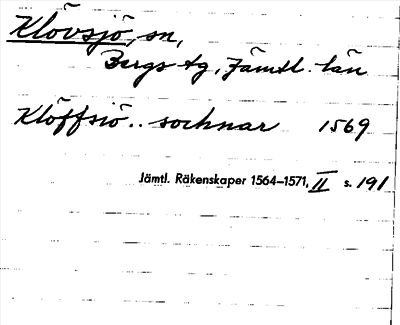 Klövsjö, sn,
Bergs tg, Jämtl. län
Klöffsiö.. sochnar 1569
Jämtl. Räkenskaper 1564–1571, II s. 191